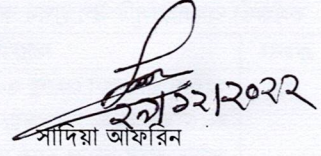 ২৯/১২/২০২২
সাদিয়া আফরিন